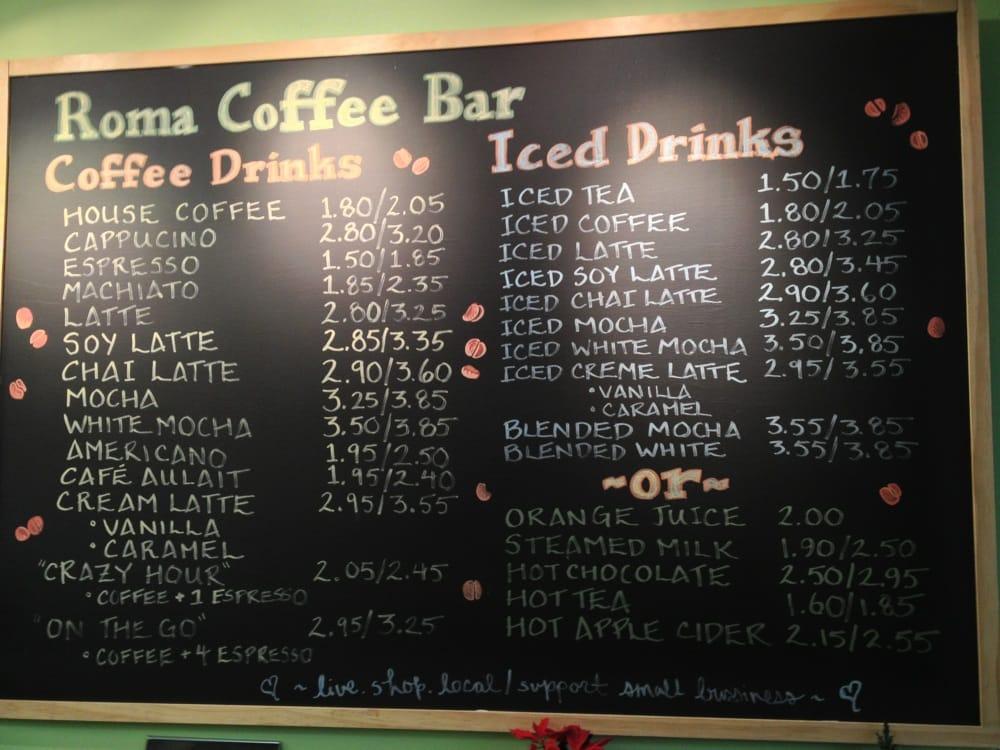 Roma Coffee Bar
Coffee Drinks
HOUSE COFFEE 1.80/2.05
CAPPUCINO 2.80/3.20
ESPRESSO 1.50/1.85
MACHIATO 1.85/2.35
LATTE 2.80/3.25
SOY LATTE 2.85/3.35
CHAI LATTE 2.90/3.60
MOCHA 3.25/3.85
WHITE MOCHA 3.50/3.85
AMERICANO 1.95/2.50
CAFÉ AULAIT 1.95/2.40
CREAM LATTE 2.95/3.55
• VANILLA
• CARAMEL
"CRAZY HOUR" 2.05/2.45
• COFFEE + 1 ESPRESSO
"ON THE GO" 2.95/3.25
• COFFEE + 4 ESPRESSO
Iced Drinks
ICED TEA 1.50/1.75
ICED COFFEE 1.80/2.05
ICED LATTE 2.80/3.25
ICED SOY LATTE 2.80/3.45
ICED CHAI LATTE 2.90/3.60
ICED MOCHA 3.25/3.85
ICED WHITE MOCHA 3.50/3.85
ICED CREME LATTE 2.95/3.55
• VANILLA
• CARAMEL
BLENDED MOCHA 3.55/3.85
BLENDED WHITE 3.55/3.85
~or~
ORANGE JUICE 2.00
STEAMED MILK 1.90/2.50
HOT CHOCOLATE 2.50/2.95
HOT TEA 1.60/1.85
HOT APPLE CIDER 2.15/2.55
♡ ~ live.shop.local/support small bussiness ~ ♡